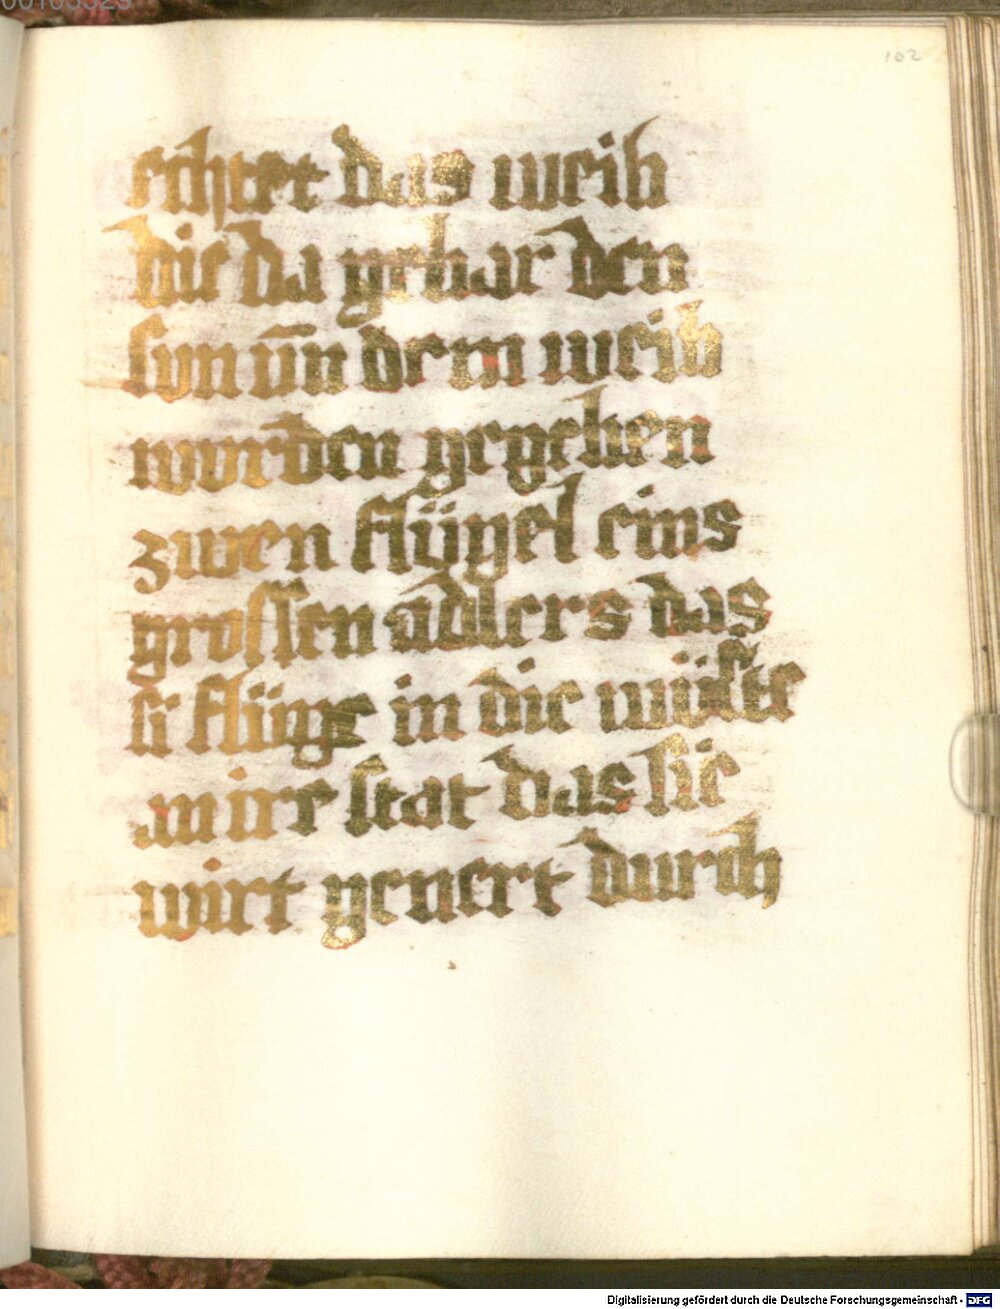 00105525
102
echtet das weib
die da gebar den
sun vn̄ dem weib
wurden gegeben
zwen flügel eins
grossen adlers das
si flüge in die wüste
an irr stat das sie
wirt genert durch
Digitalisierung gefördert durch die Deutsche Forschungsgemeinschaft - DFG